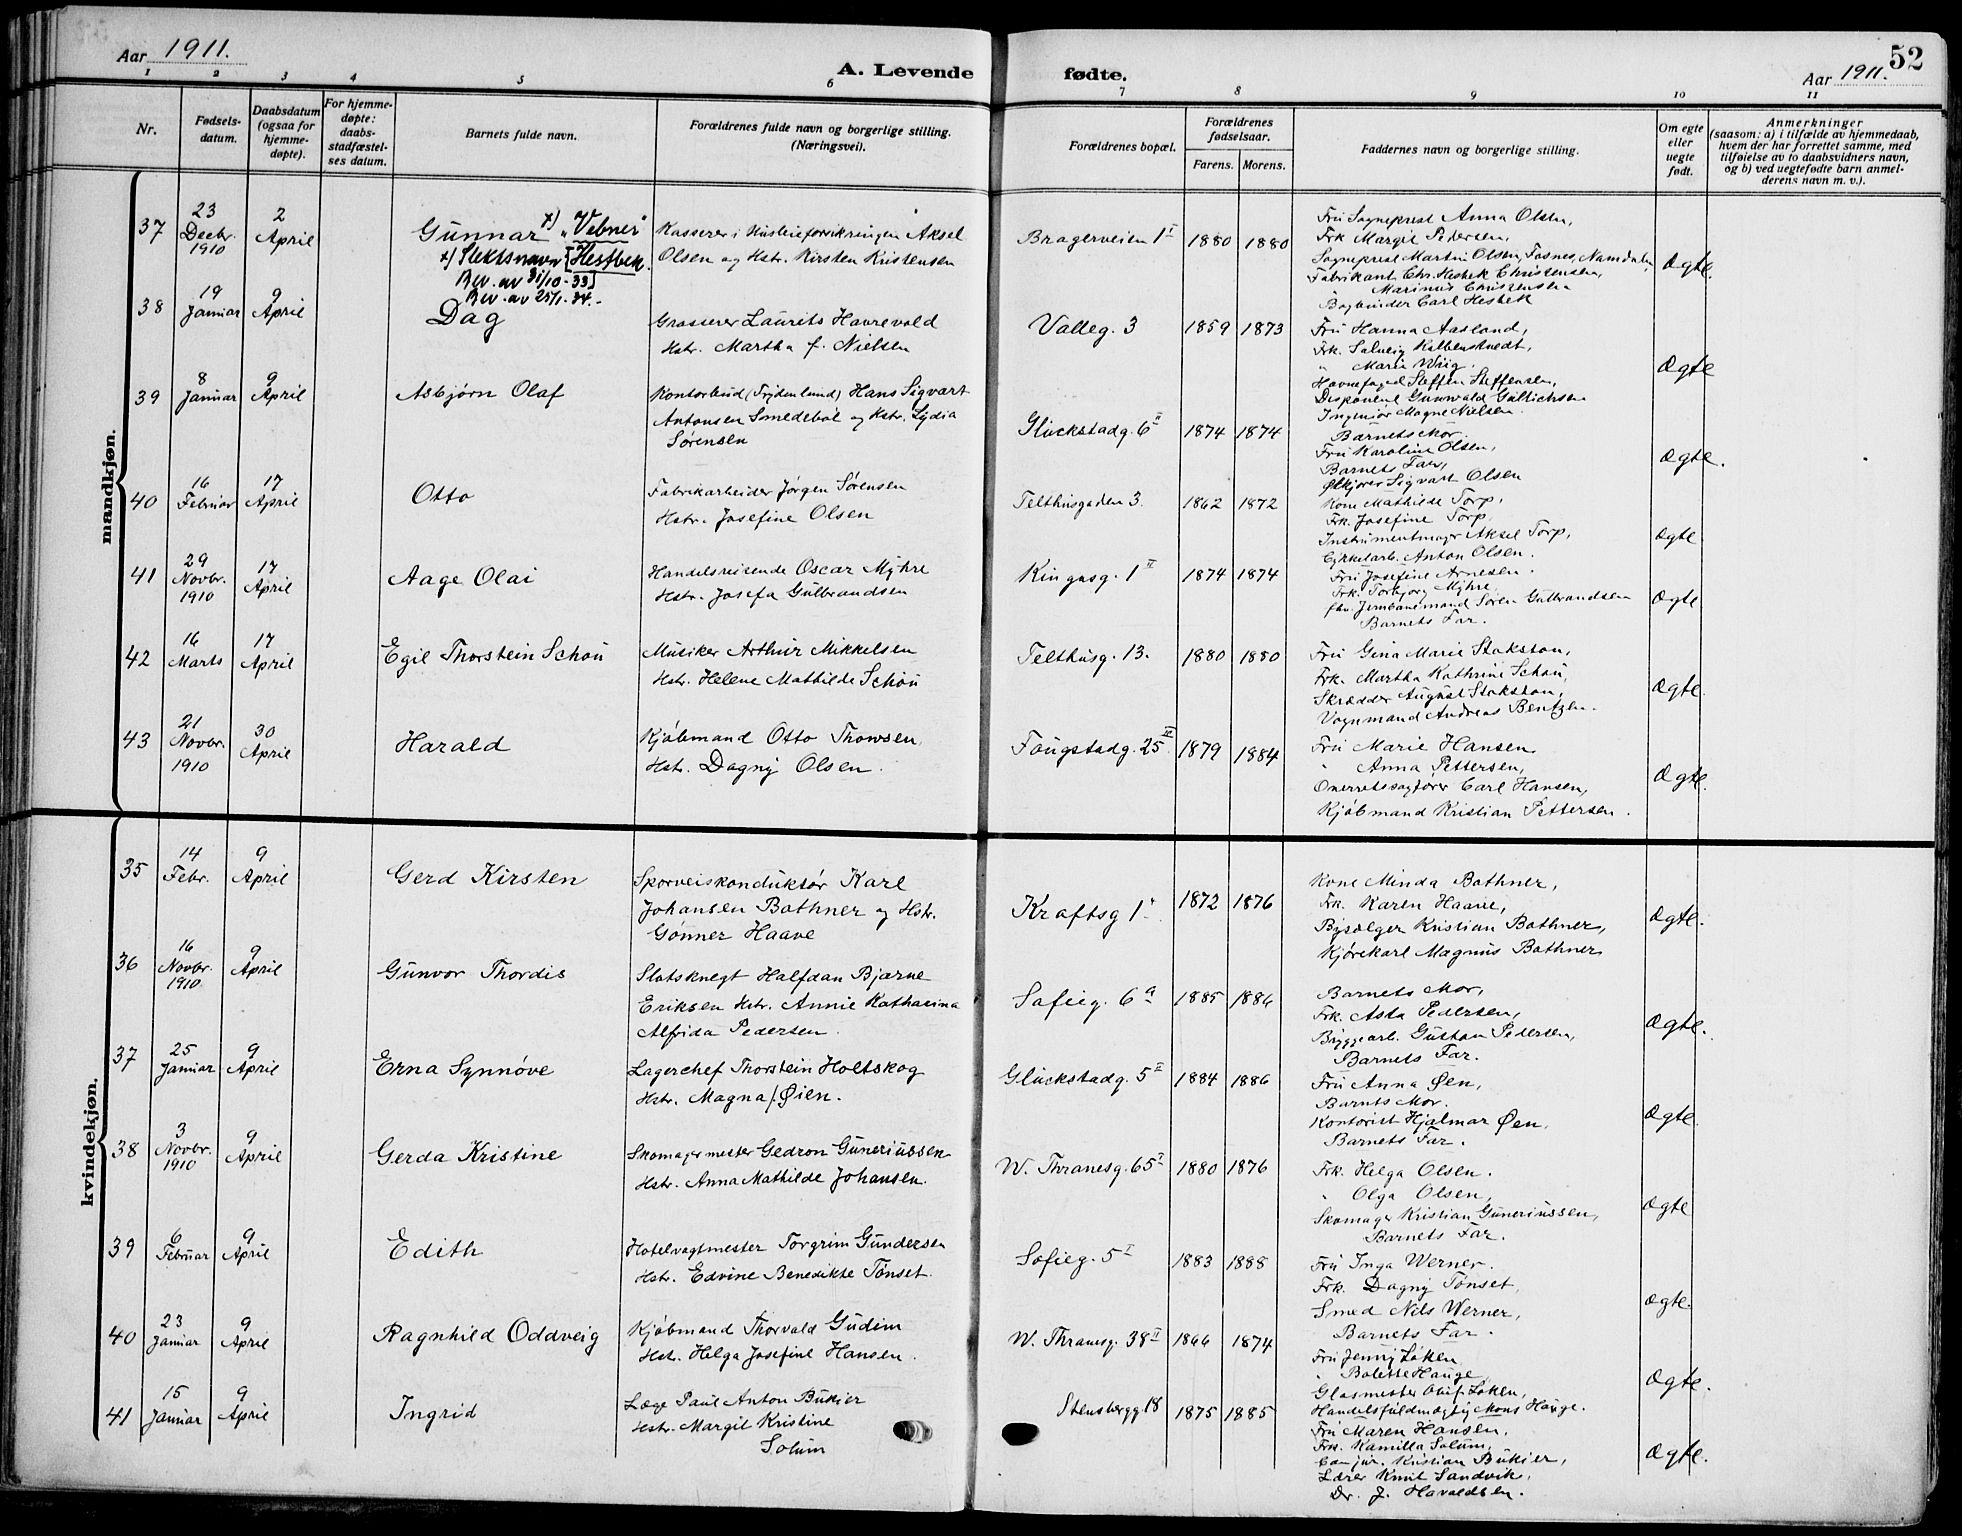 Aar 1911.
A. Levende fødte.
Aar 1911.
52
1 2 3 4 5 6 7 8 9 10 11
Nr.
Fødsels-
datum.
Daabsdatum
(ogsaa for
hjemme-
døpte).
For hjemme-
døpte:
daabs-
stadfæstel-
ses datum.
Barnets fulde navn.
Forældrenes fulde navn og borgerlige stilling.
(Næringsvei).
Forældrenes bopæl.
Forældrenes
fødselsaar.
Farens. Morens.
Faddernes navn og borgerlige stilling.
Om egte
eller
uegte
født.
Anmerkninger
(saasom: a) i tilfælde av hjemmedaab,
hvem der har forrettet samme, med
tilføielse av to daabsvidners navn,
og b) ved uegtefødte barn anmel-
derens navn m. v.).
mandkjøn.
37
23
Decbr.
1910
2
April
Gunnar x) "Vebner"
x) Slektsnavn [Hestbek.
Bev. av 31/10-33]
Bev. av 25/1-34.-
Kasserer i Husleieforsikringen Aksel
Olsen og Hstr. Kirsten Kristensen
Bragerveien 1 I
1880 1880
Fru Sogneprest Anna Olsen,
Frk Margit Pedersen,
Sogneprest Martin Olsen, Fosnes, Namdalen,
Fabrikant Chr. Hesbek Christensen,
Marinus Christensen
Bogbinder Carl Hesbek
Ægte.
38
19
Januar
9
April
Dag
Grosserer Laurits Havrevold
Hstr. Martha f. Nielsen
Valleg. 3
1859 1873
Fru Hanna Aasland,
Frk. Solveig Kolbenstvedt,
" Marie Wiig.
Havnefoged Steffen Steffensen,
Disponent Gunwald Gullichsen
Ingeniør Magne Nielsen.
Ægte
39
8
Januar
9
April
Asbjørn Olaf
Kontorbud (Frydenlund) Hans Sigvart
Antonsen Smedebøl og Hstr. Lydia
Sørensen
Glückstadg. 6 II
1874 1874
Barnets Mor.
Fru Karoline Olsen,
Barnets Far,
Ølkjører Sigvart Olsen
Ægte.
40
16
Februar
17
April
Otto
Fabrikarbeider Jørgen Sørensen
Hstr. Josefine Olsen
Telthusgaden 3.
1862 1872
Kone Mathilde Torp,
Frk. Josefine Torp,
Instrumentmager Aksel Torp,
Cirkelarb. Anton Olsen.
Ægte
41
29
Novbr.
1910
17
April
Aage Olai
Handelsreisende Oscar Myhre
Hstr. Josefa Gulbrandsen
Kingosg. 1 II
1874 1874
Fru Josefine Arnesen.
Frk. Torbjørg Myhre,
fhv. Jernbanemand Søren Gulbrandsen
Barnets Far.
Ægte
42
16
Marts
17
April
Egil Thorstein Schou
Musiker Arthur Mikkelsen
Hstr. Helene Mathilde Schou
Telthusg. 13.
1880 1880
Fru Gina Marie Stokston,
Frk. Martha Kathrine Schou,
Skrædder August Stokston,
Vognmand Andreas Bentzen.
Ægte.
43
21
Novbr.
1910
30
April
Harald
Kjøbmand Otto Thowsen
Hstr. Dagny Olsen.
Fougstadg. 25
1879 1884
Fru Marie Hansen
" Anna Pettersen,
Overretssagfører Carl Hansen,
Kjøbmand Kristian Pettersen.
Ægte.
kvindekjøn.
35
14
Febr.
9
April
Gerd Kirsten
Sporveiskonduktør Karl
Johansen Bothner og Hstr.
Gønner Haave
Kraftsg 1
1872 1876
Kone Minda Bothner,
Frk. Karen Haave,
Bysælger Kristian Bothner,
Kjørekarl Magnus Bothner
Ægte.
36
16
Novbr.
1910
9
April
Gunvor Thordis
Slotsknegt Halfdan Bjarne
Eriksen Hstr. Annie Katharina
Alfrida Pedersen.
Sofieg. 6 a
1885 1886
Barnets Mor,
Frk. Asta Pedersen,
Byggearb. Gustav Pedersen,
Barnets Far.
Ægte.
37
25
Januar
9
April
Erna Synnøve
Lagerchef Thorstein Holtskog
Hstr. Magna f. Øien.
Glückstadg. 5 II
1884 1886
Fru Anna Øen,
Barnets Mor.
Kontorist Hjalmar Øen,
Barnets Far.
Ægte
38
3
Novbr.
1910
9
April
Gerda Kristine
Skomagermester Gedron Guneriussen
Hstr. Anna Mathilde Johansen.
W. Thranesg. 65 I
1880 1876
Frk. Helga Olsen.
" Olga Olsen,
Skomager Kristian Guneriussen,
Barnets Far.
Ægte
39
6
Februar
9
April
Edith
Hotelvagtmester Torgrim Gundersen
Hstr. Edvine Benedikte Tønset.
Sofieg. 5 I
1883 1888
Fru Inga Werner.
Frk. Dagny Tønset,
Smed Nils Werner,
Barnets Far.
Ægte.
40
23
Januar
9
April
Ragnhild Oddveig
Kjøbmand Thorvald Gudim
Hstr. Helga Josefine Hansen.
W. Thranesg. 38 II
1866 1874
Fru Jenny Løken
" Bolette Hauge,
Glasmester Oluf Løken,
Handelsfuldmægtig Mons Hauge.
Ægte.
41
15
Januar
9
April
Ingrid
Læge Paul Anton Bukier
Hstr. Margit Kristine
Solum
Stensbergg 18
1875 1885
Fru Maren Hansen,
Frk. Kamilla Solum,
Can jur. Kristian Bukier,
Lærer Knut Sandvik,
Dr. J. Havaldsen.
Ægte.